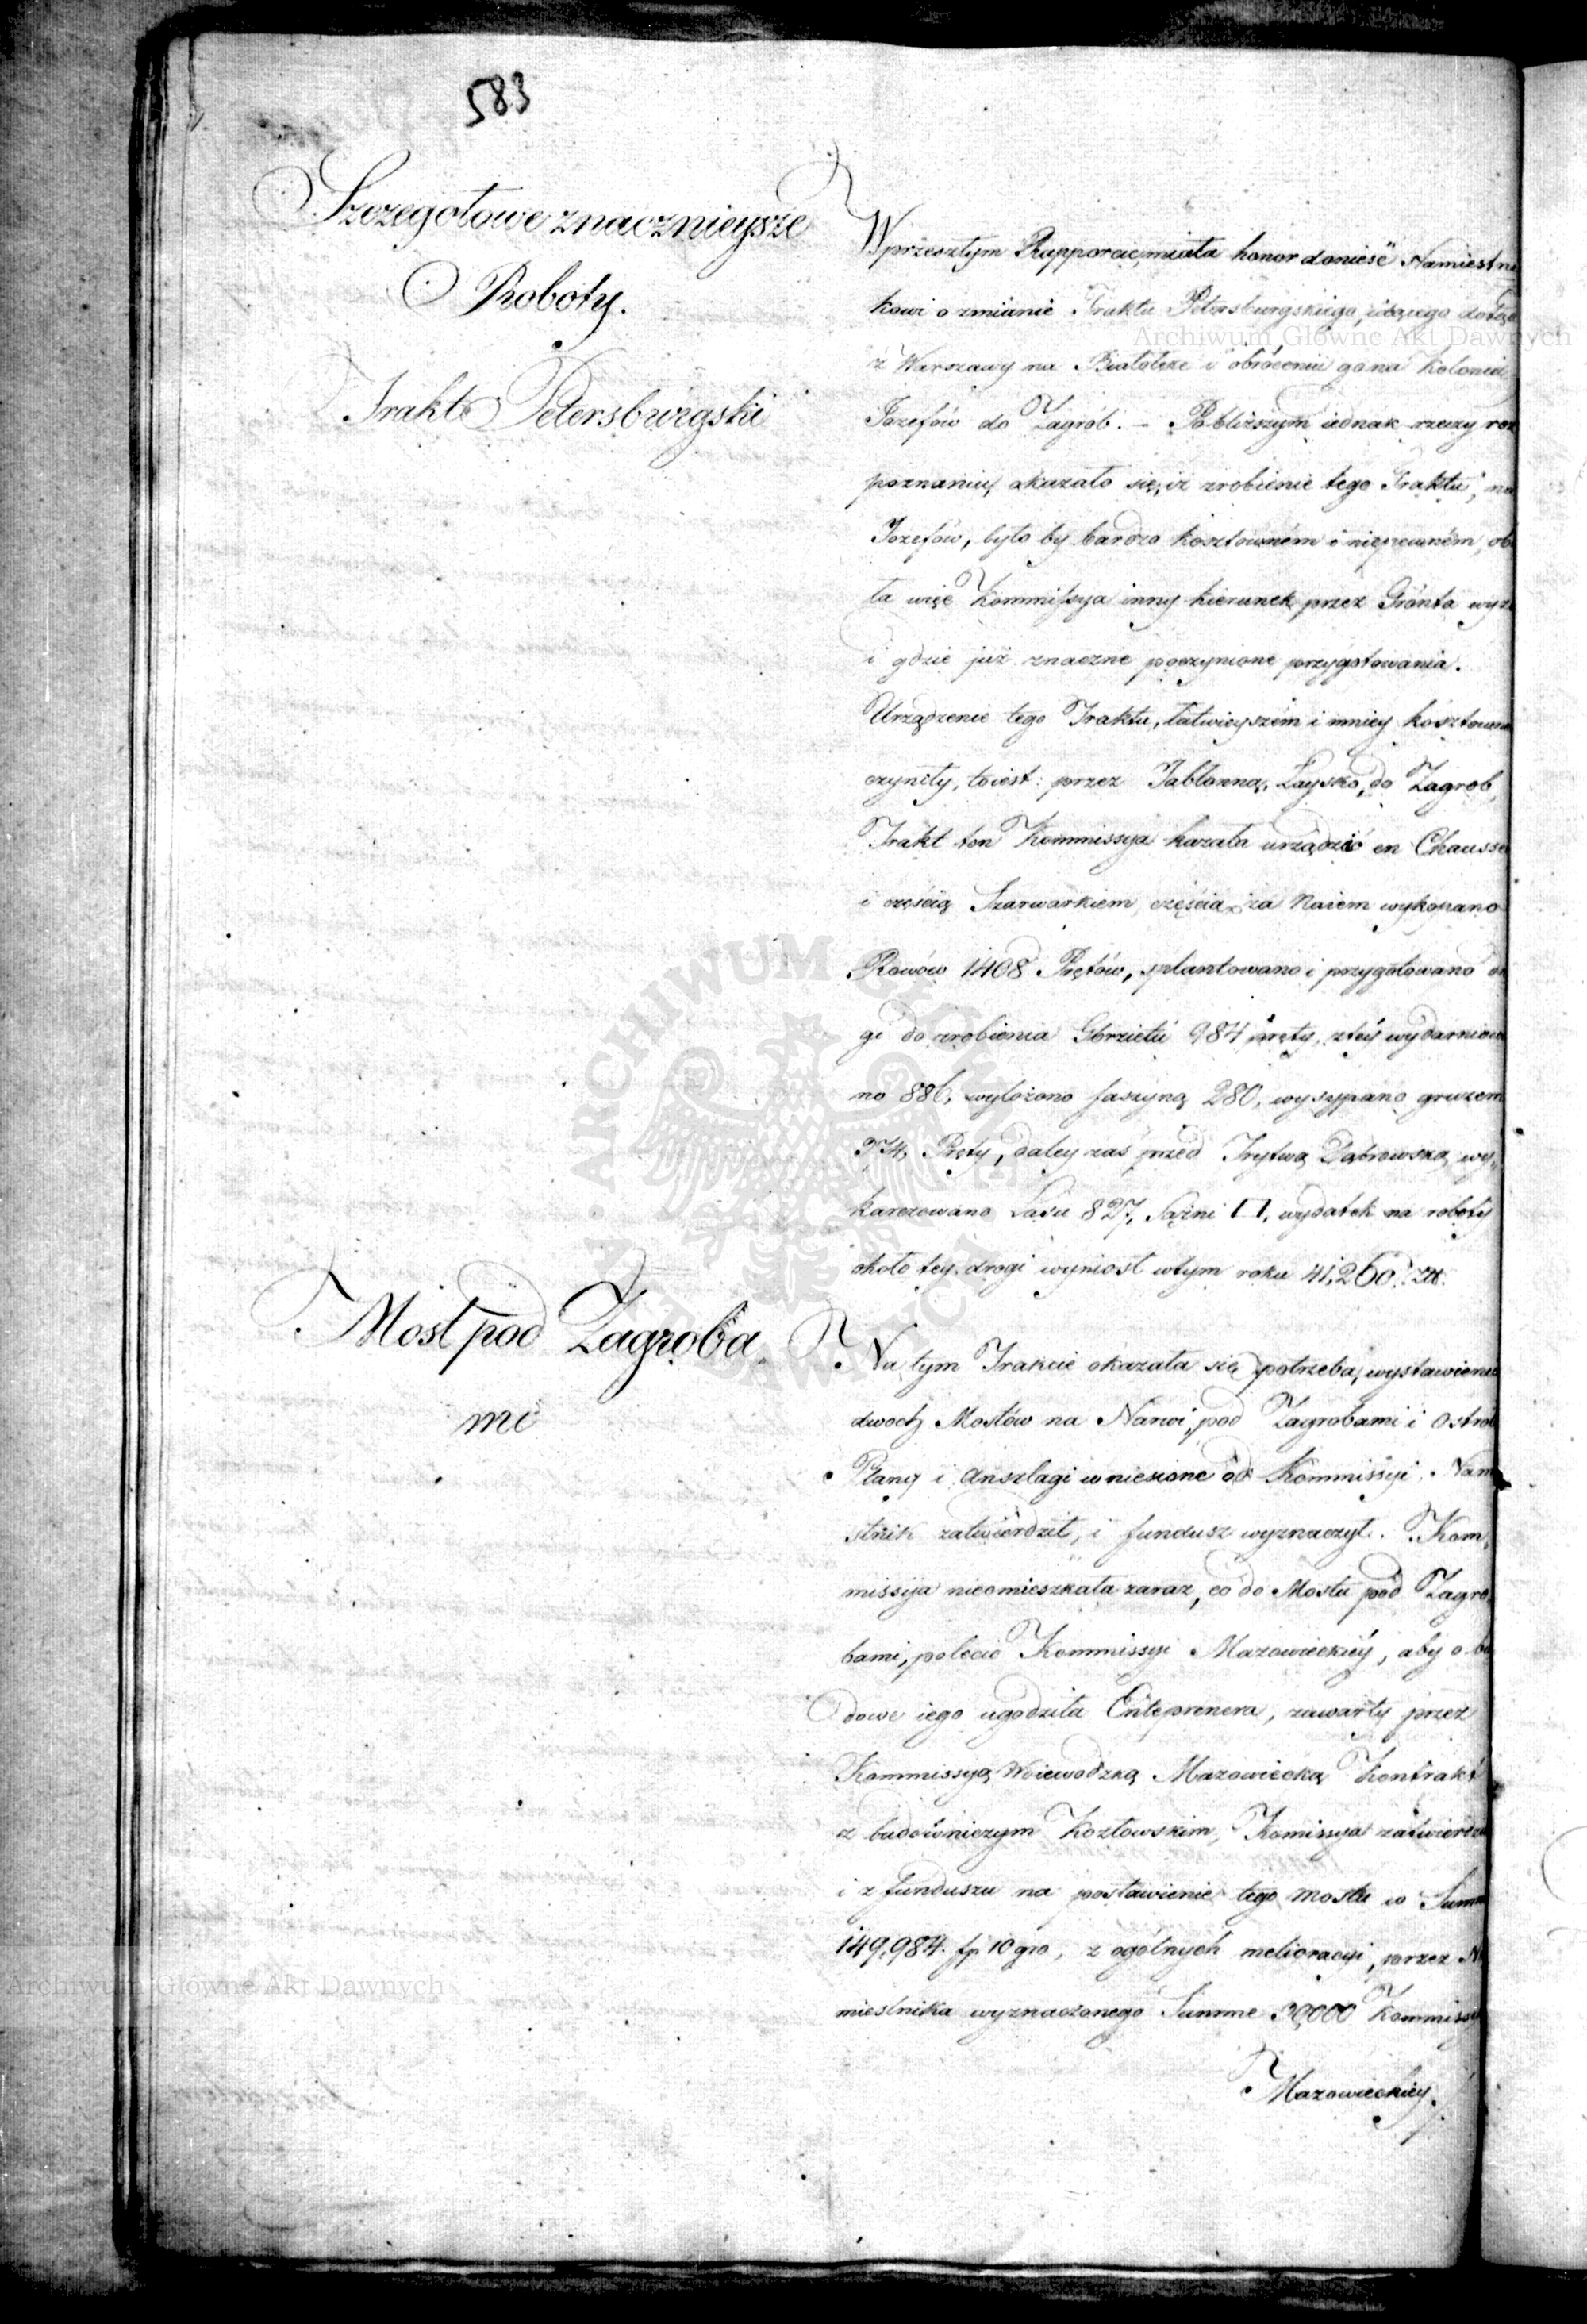 583
Szczegołowe znacznieysze
Roboty.
Trakt Petersburgski
W przeszłym Rapporcie, miała honor donieść Namiestni
kowi o zmianie Traktu Petersburgskiego, idącego dotąd
z Warszawy na Białołękę i obróceniu go na Kolonią
Jozefów do Zagrób. – Pobliższym iednak rzeczy roz
poznaniu, okazało się, iż zrobienie tego Traktu, na
Jozefów, było by bardzo kosztowném i niepewném, ob
ła więc Kommissya inny kierunek przez Gronta wyż
i gdzie już znaczne poczynione przygotowania.
Urządzenie tego Traktu, łatwieyszém i mniey kosztown
czyniły, toiest: przez Jabłonną, Łaysko, do Zagrob,
Trakt ten Kommissya kazała urządzić en Chausse
i częścią Szarwarkiem, częścią za Naiem wykopano
Rowów 1408 Prętów, splantowano i przygotowano d
gi do zrobienia Grzbietu 984 pręty, ztéy wydarniow
no 886, wyłożono faszyną 280, wysypano gruzem
974, Pręty, daley zaś przed Trytwą Dąbrowską, wy,
karczowano Lasu 827, Sążni □, wydatek na roboty
około tey drogi wyniosł wtym roku 41,260. Zł.
Most pod Zagroba,
mi
Na tym Trakcie okazała się potrzeba, wystawienia
dwoch Mostów na Narwi, pod Zagrobami i Ostroł
Plany i Anszlagi wniesione od Kommissyi, Nam
stnik zatwierdził, i fundusz wyznaczył. Kom,
missyia nieomieszkała zaraz, co do Mostu pod Zagro,
bami, polecić Kommissyi Mazowieckiéy, aby o bu
dowę iego ugodziła Enteprenera, zawarty przez
Kommissyą Woiewodzką Mazowiecką Kontrakt
z budowniczym Kozłowskim, Komissya zatwierdzi
i z funduszu na postawienie tego mostu w Summ
149,984. fp 10 gro, z ogólnych melioracyi, przez Na
miestnika wyznaczonego Summe 30,000 Kommissy
Mazowieckiey.
Archiwum Główne Akt Dawnych
ARCHIWUM GŁÓWNE AKT DAWNYCH
Archiwum Główne Akt Dawnych